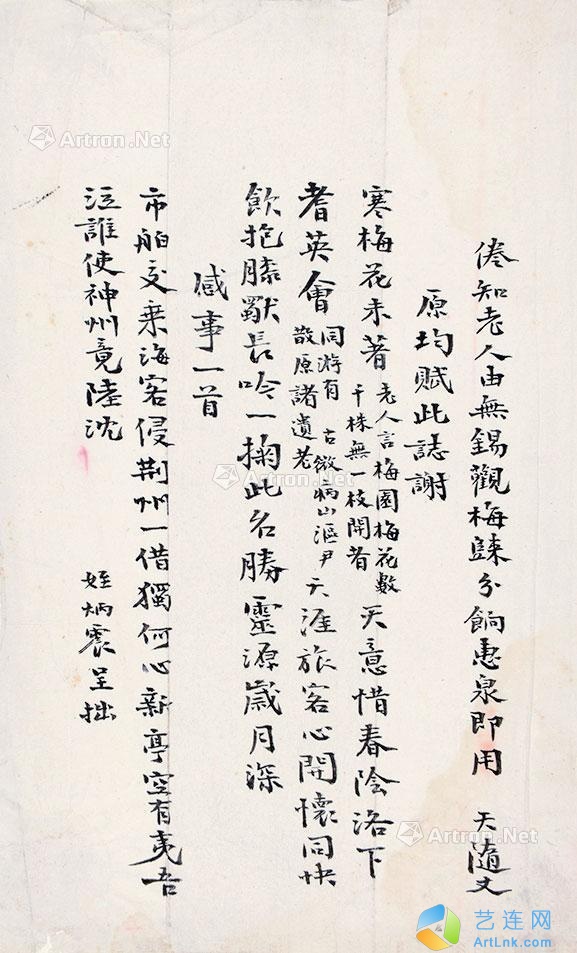 倦知老人由無錫觀梅歸分餉惠泉即用 天隨丈
原均賦此誌謝
寒梅花未著 老人言梅園梅花數千株無一枝開者 天意惜春陰洛下
耆英會 同游有古微病山漚尹散原諸遺老 天涯旅客心開懷同快
飲抱膝獸長吟一掬此名勝靈源歲月深
感事一首
市舶交乘海客侵荆州一借獨何心新亭空有夷吾
泣誰使神州竟陸沈
姪炳震呈拙
Artron.Net
Artron.Net
Artron.Net
Artron.Net
艺连网
ArtLnk.com